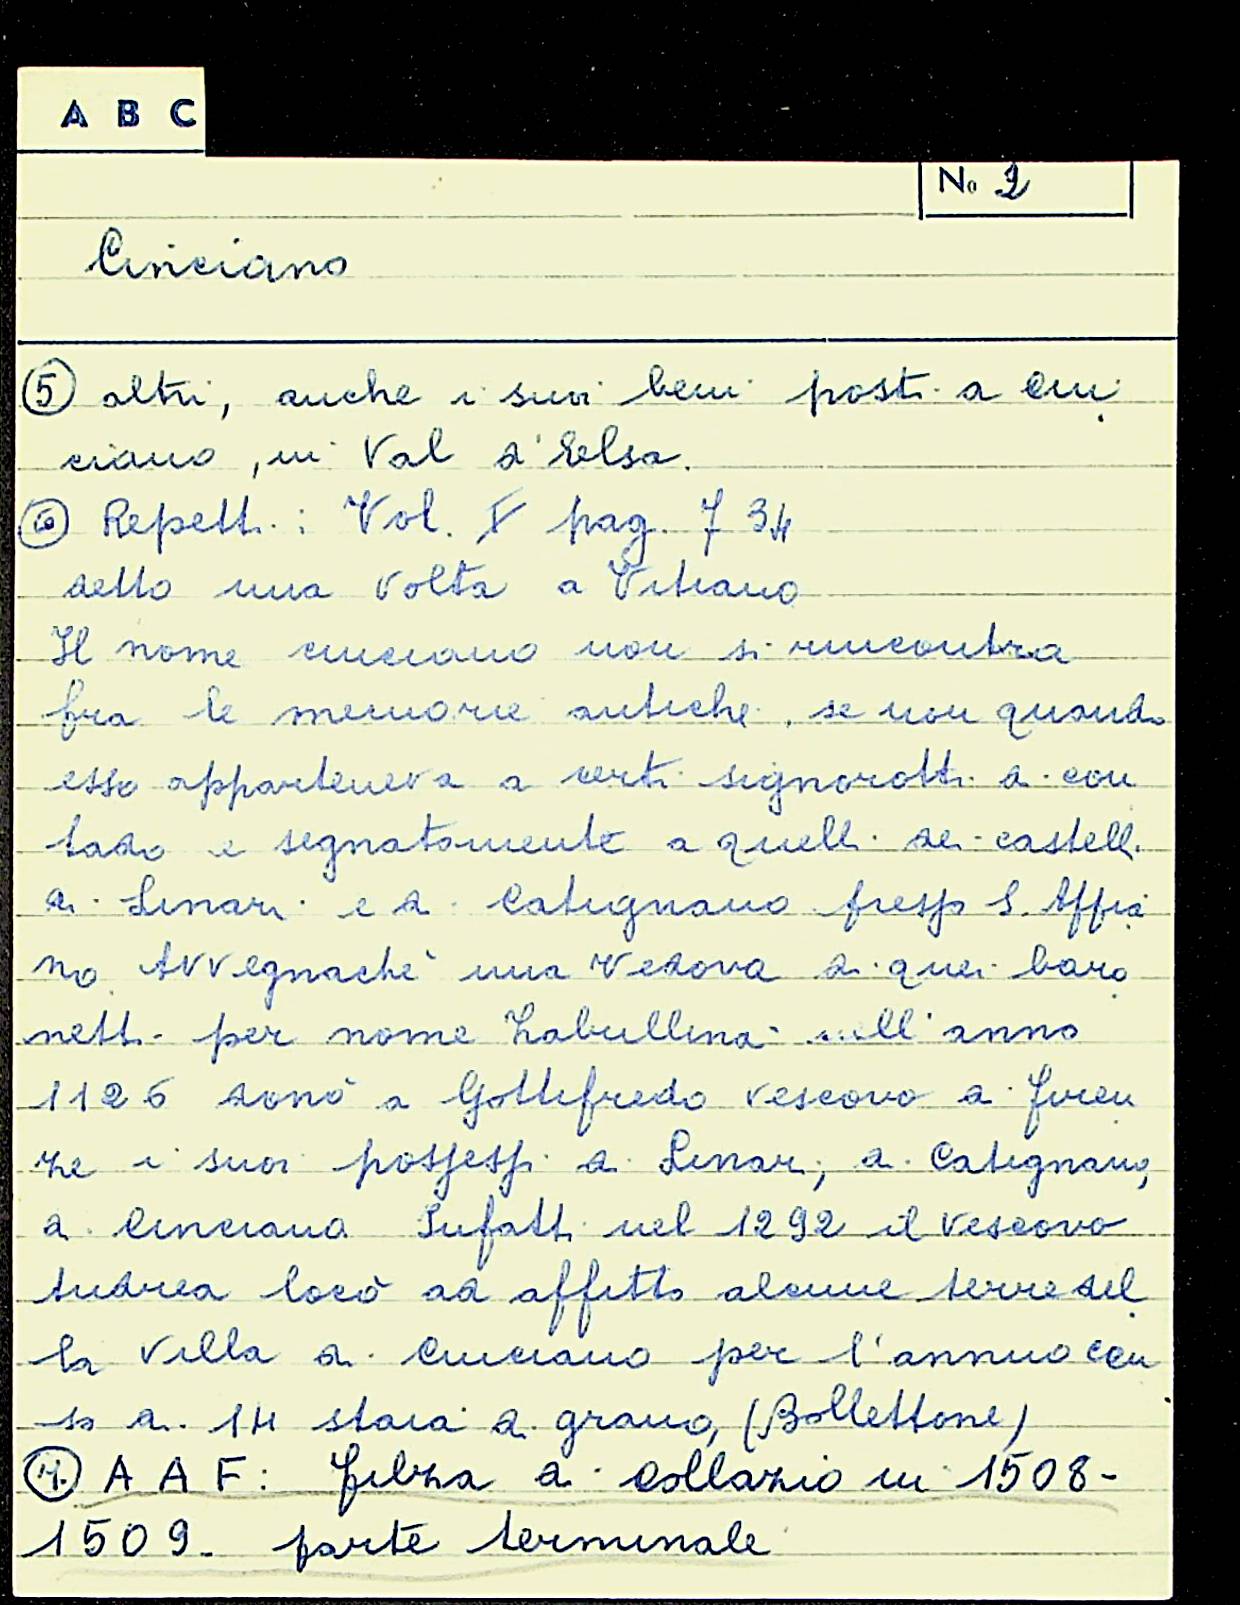 A B C
No 2
Cinciano
5 altri, anche i suoi beni posti a Cin
ciano, in Val d'Eelsa.
6 Repetti: Vol. V pag. 734
detto una volta a Vitiano
Il nome cinciano non si rincontra
fra le memorie antiche, se non quando
esso apparteneva a certi signorotti di con
tado e segnatamente a quelli dei castelli
di Linari e di Catignano presso S. Appia
no Avvegnachè una vedova di quei baro
netti per nome Zabullina nell'anno
1126 donò a Gottifredo vescovo di Firen
ze i suoi possessi di Linari, di Catignano,
di Cinciano Infatti nel 1292 il vescovo
Andrea locò ad affitto alcune terre del
la villa di Cinciano per l'annuo cen
so di 14 staia di grano, (Bollettone)
A A F: Filza di Collazio in 1508-
1509. parte terminale